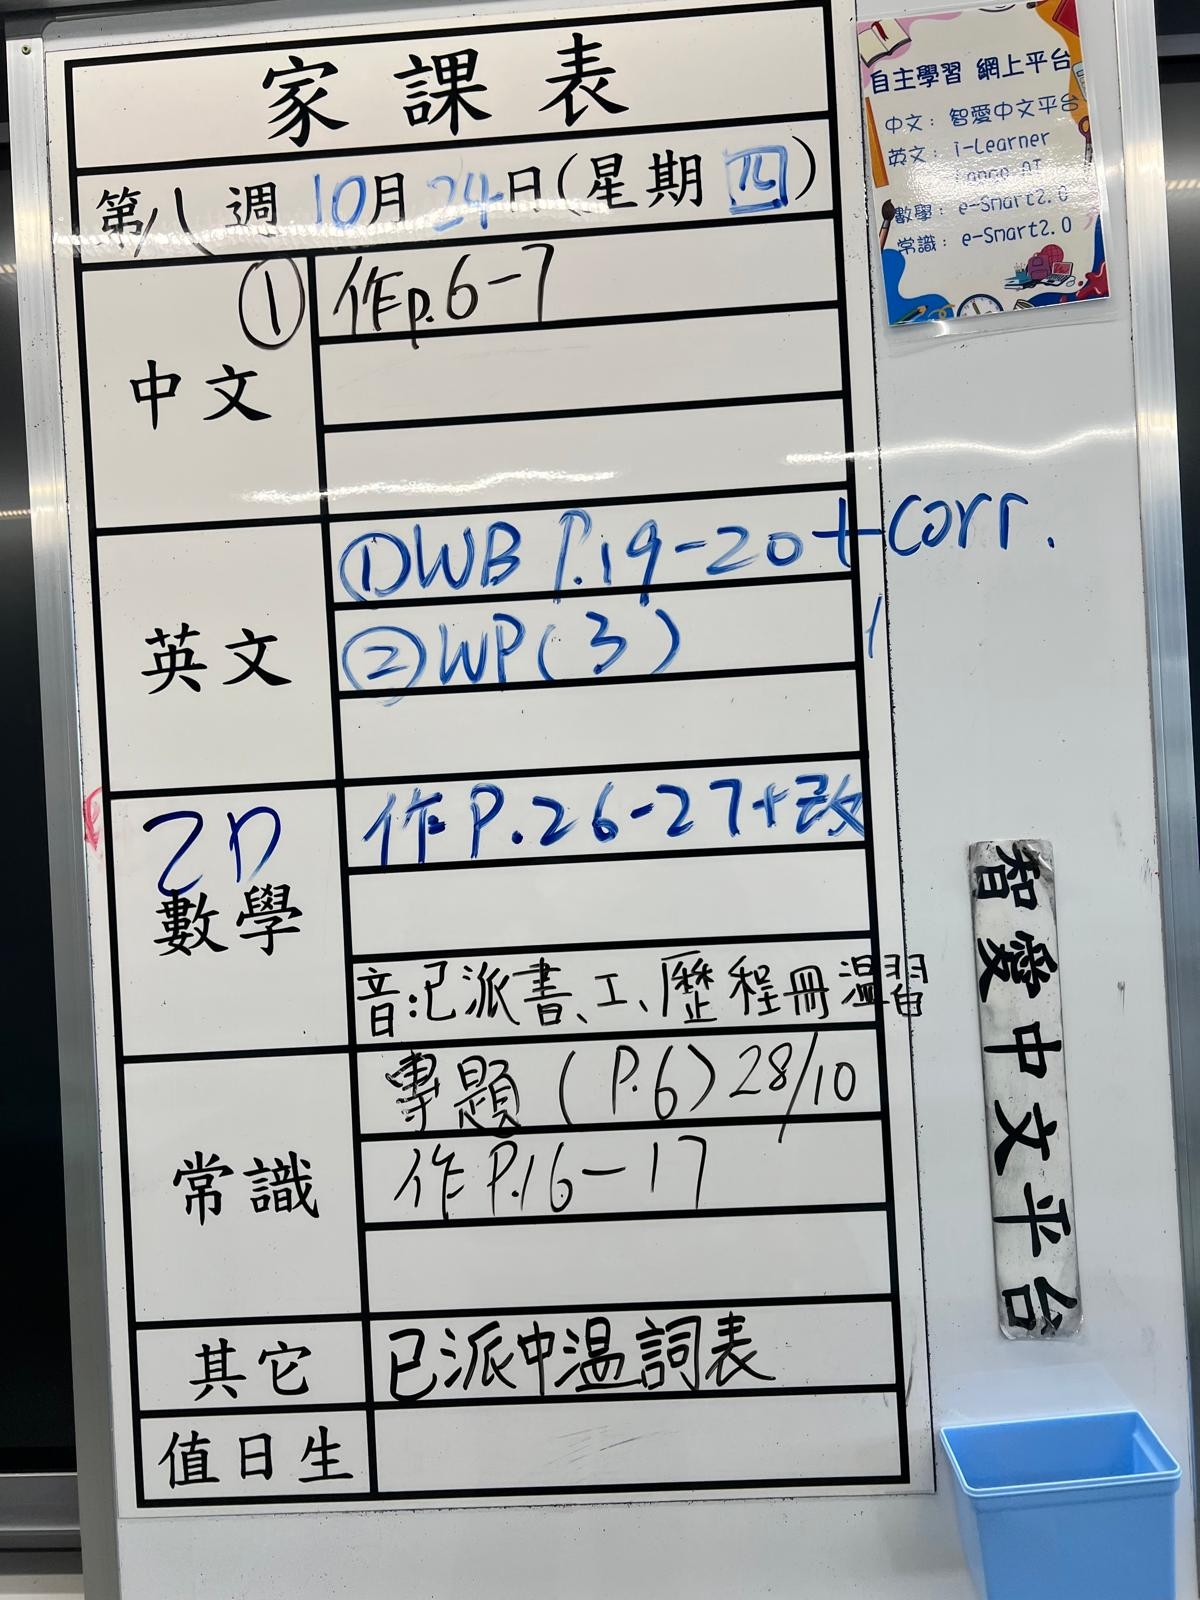 家課表
第八週 10月24日(星期四)
中文
① 作p.6-7
英文
①WB P.19-20+corr.
②WP(3)
數學
作P.26-27+改
音:已派書、工、歷程冊温習
常識
專題(P.6)28/10
作P.16-17
其它
已派中温詞表
值日生
自主學習 網上平台
中文: 智愛中文平台
英文: i-Learner
數學: e-Smart2.0
常識: e-Smart2.0
智愛中文平台